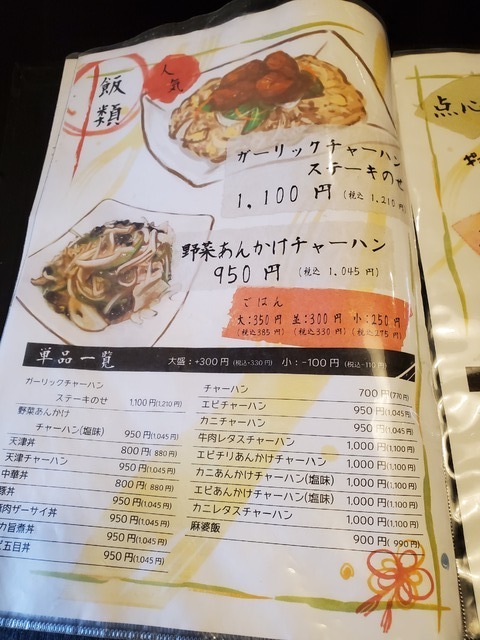 飯類
人気
ガーリックチャーハン
ステーキのせ
1,100円 (税込 1,210円)
野菜あんかけチャーハン
950円 (税込 1,045円)
ごはん
大:350円 並:300円 小:250円
(税込385円) (税込330円) (税込275円)
単品一覧 大盛:+300円(税込+330円) 小:-100円(税込-110円)
ガーリックチャーハン
ステーキのせ 1,100円(1,210円)
野菜あんかけ
チャーハン(塩味) 950円(1,045円)
天津丼 800円( 880円)
天津チャーハン 950円(1,045円)
中華丼 800円( 880円)
豚丼 950円(1,045円)
肉ザーサイ丼 950円(1,045円)
旨煮丼 950円(1,045円)
五目丼 950円(1,045円)
チャーハン 700円(770円)
エビチャーハン 950円(1,045円)
カニチャーハン 950円(1,045円)
牛肉レタスチャーハン 1,000円(1,100円)
エビチリあんかけチャーハン 1,000円(1,100円)
カニあんかけチャーハン(塩味) 1,000円(1,100円)
エビあんかけチャーハン(塩味) 1,000円(1,100円)
カニレタスチャーハン 1,000円(1,100円)
麻婆飯 900円( 990円)
点心